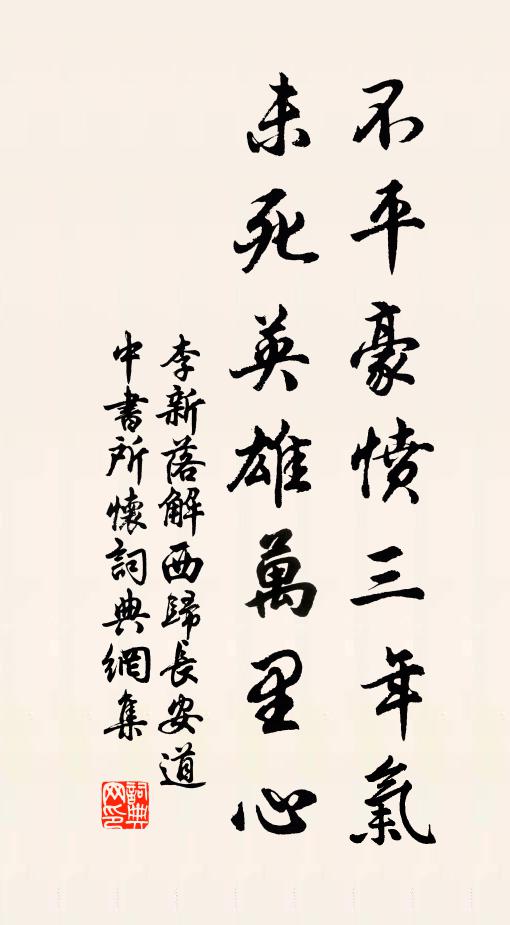 不平豪憤三年氣
未死英雄萬里心
李新落解西歸長安道
中書所懷詞典網集
詞典
网印